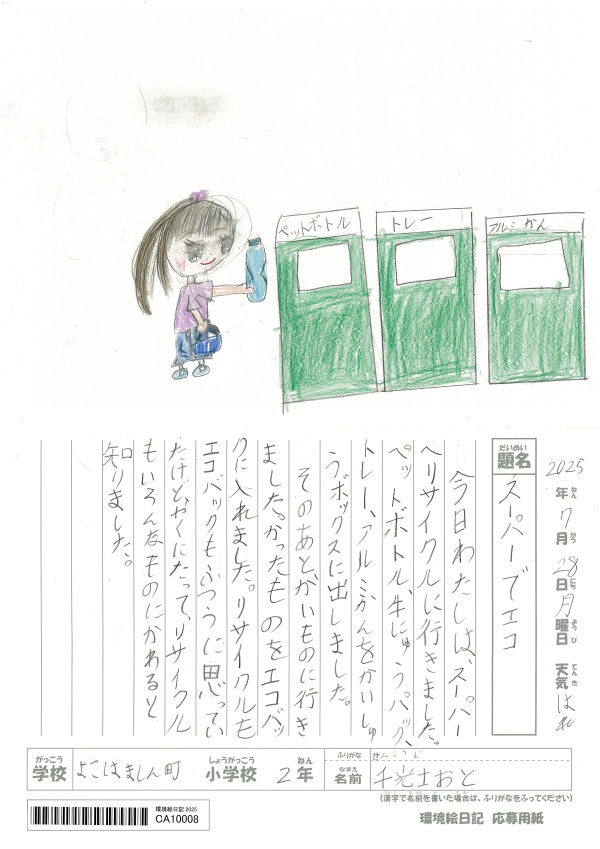 ペットボトル
トレー
アルミかん
2025年7月28日月曜日 天気 はれ
ねん がつ にち ようび てんき
だいめい
題名
スーパーでエコ
今日わたしは、スーパー
へリサイクルに行きました。
ペットボトル、牛にゅうパック、
トレー、アルミかんをかいしゅ
うボックスに出しました。
そのあとかいものに行き
ました。かったものをエコバッ
クに入れました。リサイクルも
エコバックもふつうに思ってい
たけど、やくにたって、リサイクル
もいろんなものにかわると
知りました。
がっこう
学校
よこはましん町
しょうがっこう
小学校
2
ねん
年
ふりがな
せんこうじ
なまえ
名前
千光士おと
(漢字で名前を書いた場合は、ふりがなをふってください)
環境絵日記 2025
CA10008
環境絵日記 応募用紙